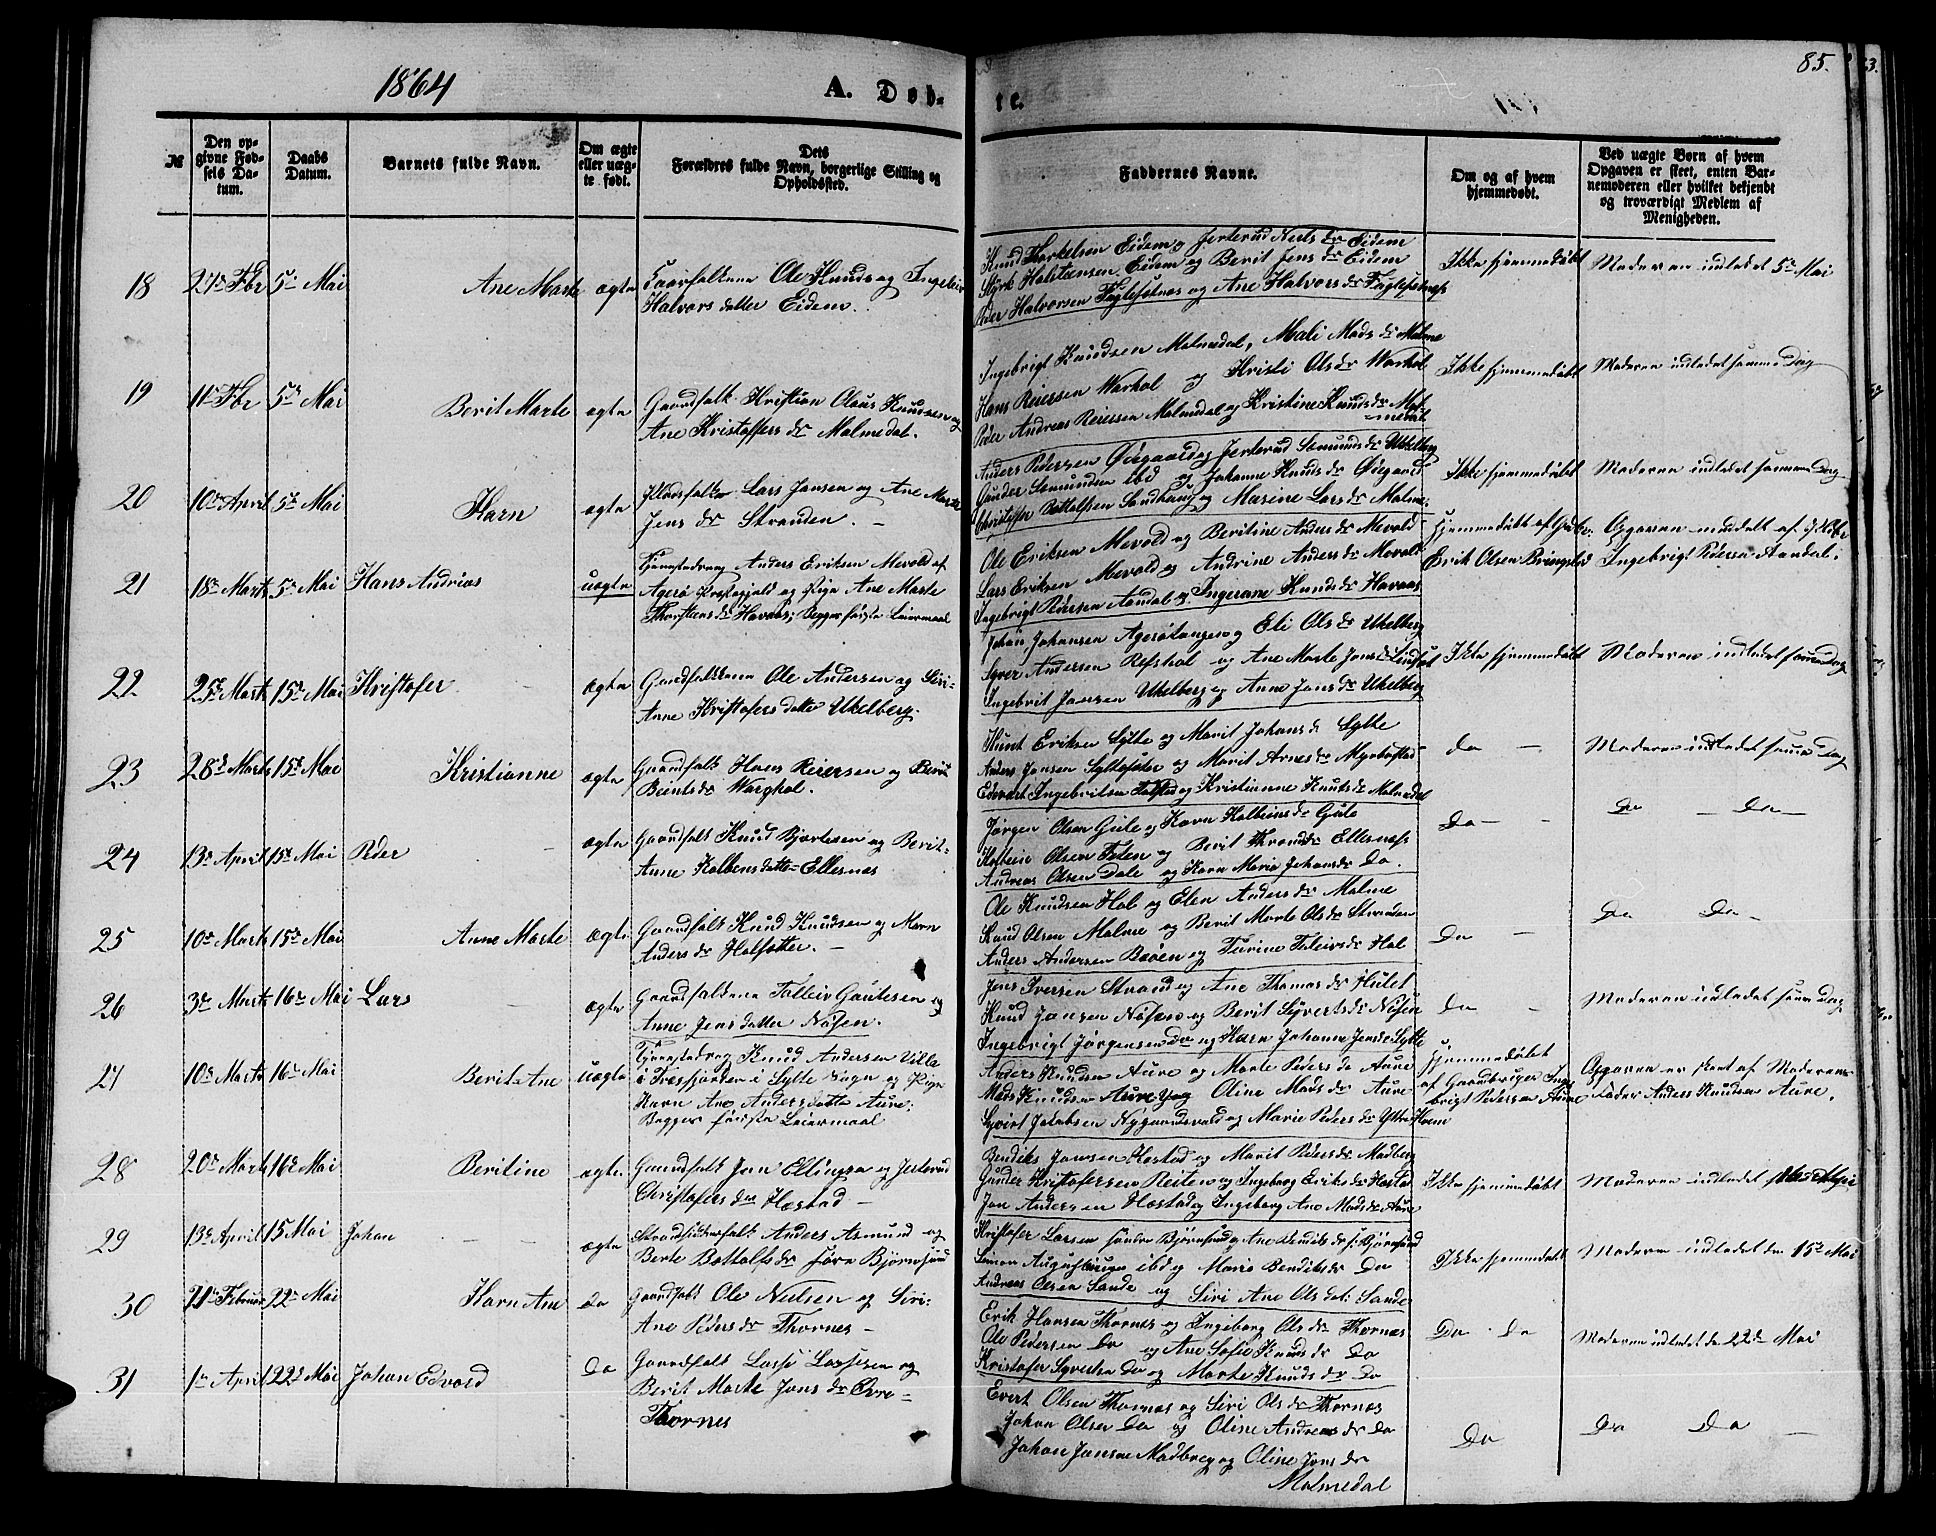 1864
A. Døb-
te.
85.
№
Den op-
givne Fød-
sels Da-
tum.
Daabs
Datum.
Barnets fulde Navn.
Om ægte
eller uæg-
te født.
Dets
Forældres fulde Navn, borgerlige Stilling og
Opholdssted.
Faddernes Navne.
Om og af hvem
hjemmedøbt.
Ved uægte Børn af hvem
Opgaven er skeet, enten Bar-
nemoderen eller hvilket bekjendt
og troværdigt Medlem af
Menigheden.
18 27de Fbr 5te Mai Ane Marte ægte Ole Knuds og Ingebor
Halvors datter Eidem.
Knud Thorkelsen Eidem og Jertrud Niels dr Eidem
Styrk Halstensen Eidem og Berit Jens dr Eidem
Peder Halvorsen Fuglesetnes og Ane Halvors dr Fuglesetness
Ikke hjemmedøbt
Moderen indledet 5te Mai
19 11te Fbr 5te Mai Berit Marte ægte Gaardfolk Kristian Olaus Knudsen og
Ane Kristoffers dr Malmedal.
Ingebrigt Knudsen Malmedal, Mali Mads dr Malme
Hans Reiersen Warhol og Kristi Ols dr Warhol
Peder Andreas Reiersen Malmedal og Kristine Knuds dr Mal-
medal
Ikke hjemmedøbt
Moderen indledet samme Dag
20 10de April 5te Mai Karn ægte Lars Jansen og Ane Marte
Jens dr Stranden. –
Anders Pedersen Ødegaard og Jertrud Semunds dr Ukkelberg
Gunder Semundsen ibd og Johanne Knuds dr Øiegaard
Christoffer Bottolfsen Sandhaug og Marine Lars dr Malme.
Ikke hjemmedøbt
Moderen indledet samme Dag
21 18de Marts 5te Mai Hans Andreas uægte Tjenestedreng Anders Eriksen Mevold af
Agerø Prestegjeld og Pige Ane Marte
Thorsteens dr Havnes; Begges første Leiermaal
Ole Eriksen Mevold og Beritine Anders dr Mevold
Lars Eriksen Mevold og Andrine Anders dr Mevold
Ingebrigt Pedersen Aandal og Ingerane Knuds dr Havnes
Hjemmedøbt af
Erik Olsen Bringsled
Opgaven meddelt af
Ingebrigt Pedersen Aandal.
22 25de Marts 15de Mai Kristofer ægte Gaardfolkene Ole Andersen og Siri-
Anne Kristofers datter Ukelberg.
Johan Johansen Agerøtangen og Eli Ols dr Ukelberg
Syver Andersen Refshol og Ane Marte Jons dr Lindset
Ingebrit Jansen Ukelberg og Anne Jans dr Ukelberg
Ikke hjemmedøbt
Moderen indledet samme Dag
23 28de Marts 15de Mai Kristianne ægte Gaardfolk Hans Reiersen og Berit
Beints dr Warghol.
Knut Eriksen Sylte og Marit Johans dr Sylte
Anders Jansen Syltesæter og Marit Arnes dr Myrbostad
Edevart Ingebritsen Tolstad og Kristianne Knuts dr Malmedal
Do –
Moderen indledet samme Dag
24 13de April 15de Mai Peder – ægte Gaardfolk Knud Bjortesen og Berit-
Anne Kolbens datter Ellesnes
Jørgen Olsen Gule og Karn Kolbeins dr Gule
Kolbein Olsen Teten og Berit Thronds dr Ellesness
Andreas Olsen Dale og Karn Maria Johans dr Do.
Do – –
Do – Do –
25 10de Marts 15de Mai Anne Marte ægte Gaardfolk Knud Knudsen og Marn
Anders dr Holsetter. –
Ole Knudsen Hol og Elen Anders dr Malme
Knud Olsen Malme og Berit Marte Ols dr Stranden
Anders Andersen Bøen og Turine Toleivs dr Hol
Do –
Do Do –
26 3de Marts 16de Mai Lars – ægte Gaardfolkene Tolleiv Gautesen og
Anne Jens datter Nøsen.
Jens Iversen Strand og Ane Thomas dr Hulet
Knud Jansen Nøsen og Berit Syverts dr Nøsen
Ingebrigt Jørgensen Do og Karn Johanne Jens dr Sylte
Do –
Moderen indledet samme Dag
27 10de Marts 16de Mai Berit Ane uægte Tjenestedreng Knud Andersen Villa
i Tresfjorden i Sylte Sogn og Pige
Karn Ane Anders datter Aure.
Begges første Leiermaal
Anders Knudsen Aure og Marte Peders dr Aure
Mads Knudsen Aure og Oline Mads dr Aure
Syvert Jakobsen Nygaardsvold og Marie Peders dr Ytter
Hjemmedøbt
af Gaardbruger Inge-
brigt Pedersen Aure
Opgaven er skeet af Moderens
Fader Anders Knudsen Aure.
28 20de Marts 16de Mai Beritine ægte Gaardfolk Jon Ellingsen og Jertrud
Christofers dr Hostad –
Bendiks Jansen Hostad og Marit Peders dr Madberg
Gunder Kristofersen Reiten og Ingeborg Eriks dr Hostad
Jon Andersen Hostad og Ingeborg Ane Mads dr Aure
Ikke hjemmedøbt
Moderen indledet
29 13de April 15 Mai Johan – – ægte Anders Asmund og
Berte Bottolfs dr søre Bjørnsund
Kristofer Larsen søndre Bjørnsund og Ane Bendiks dr s. Bjørnsund
Simon Augustinusen ibd og Marie Bendiks dr Do
Andreas Olsen Sande og Siri Ane Ols dat: Sande
Ikke hjemmedøbt
Moderen indledet den 15de Mai
30 21de Februar 22de Mai Karn Ane do Gaardfolk Ole Nielsen og Siri-
Ane Peders dr Thornes –
Erik Hansen Thornes og Ingeborg Ols dr Thornes
Ole Pedersen Do og Ane Sofie Knuds dr Do
Kristofer Syvertsen Do og Marte Knuds dr Do
Do – Do
Moderen indledet den 22de Mai
31 1te April 22de Mai Johan Edvard Do Gaardfolk Lasse Lassesen og
Berit Marte Jons dr Øvre-
Thornes
Evert Olsen Thornes og Siri Ols dr Thornes
Johan Olsen Do og Oline Andreas dr Do
Johan Jansen Madberg og Oline Jons dr
Malmedal
Do
Do Do –